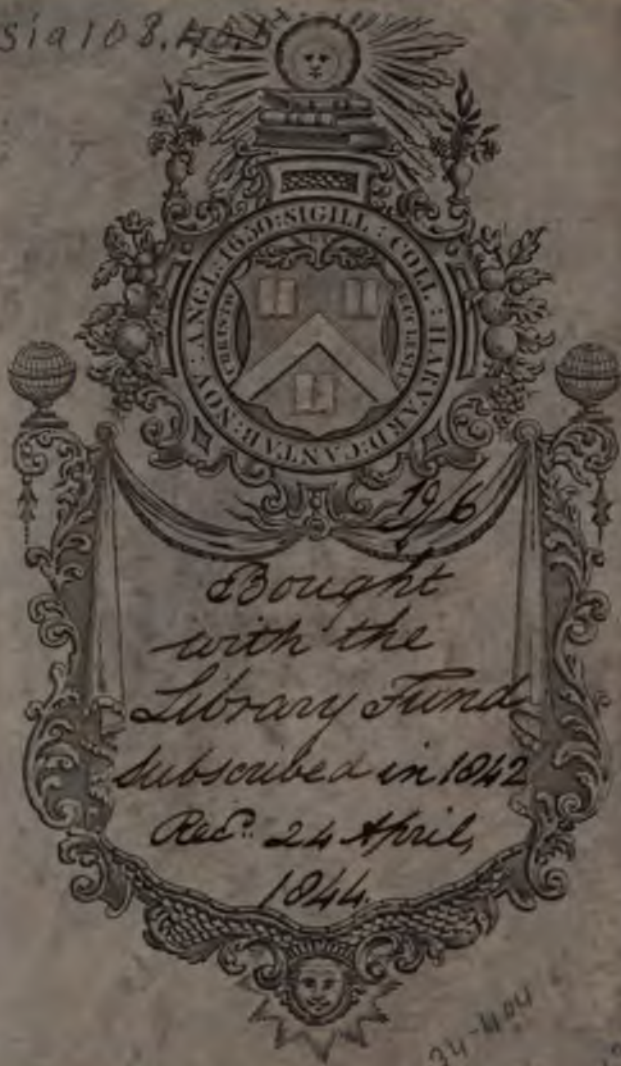 SIGILL : COLL : HARVARD : CANTAB : NOV : ANGL : 1650 :
CHRISTO
ECCLESIÆ
19/6
Bought
with the
Library Fund
subscribed in 1842
Rec^d. 24 April,
1844.
34-404